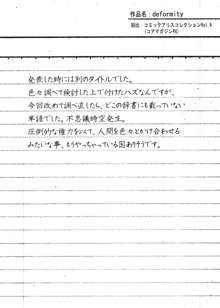 作品名：deformity
初出：コミックアリスコレクションVol.4
（コアマガジン刊）
発表した時には別のタイトルでした。
色々調べて検討した上で付けたハズなんですが、
今回改めて調べ直したら、どこの辞書にも載っていない
単語でした。不思議時空発生。
圧倒的な権力をこんで、人間を色々とかけ合わせる
みたいな事、もうやっちゃっている国ありそうです。